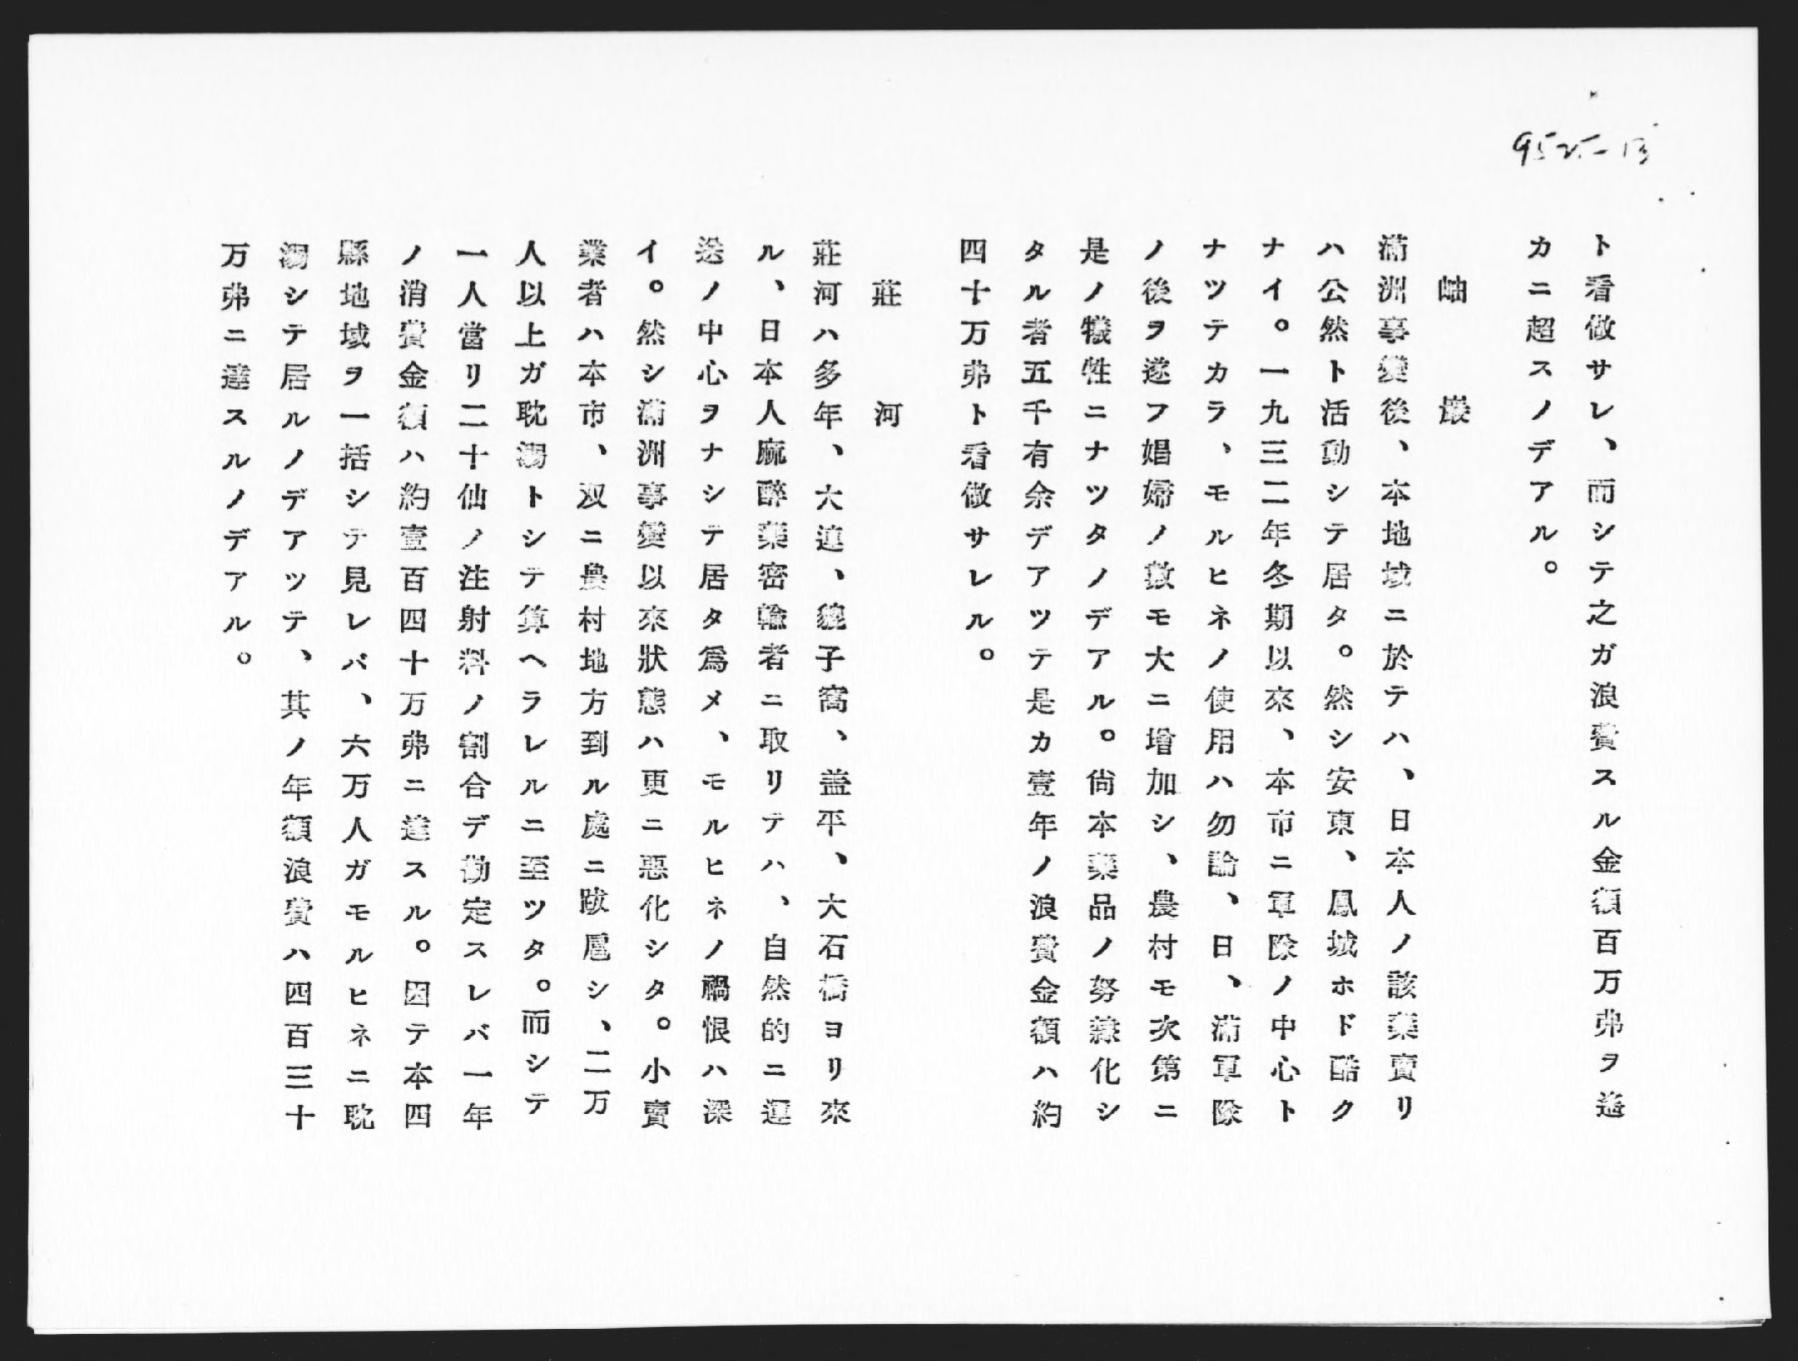 9525-13
ト看做サレ、而シテ之ガ浪費スル金額百万弗ヲ遙
カニ超スノデアル。
岫巖
滿洲事變後、本地域ニ於テハ、日本人ノ該藥賣リ
ハ公然ト活動シテ居タ。然シ安東、鳳城ホド酷ク
ナイ。一九三二年冬期以來、本市ニ軍隊ノ中心ト
ナツテカラ、モルヒネノ使用ハ勿論、日、滿軍隊
ノ後ヲ遂フ娼婦ノ數モ大ニ増加シ、農村モ次第ニ
是ノ犧牲ニナツタノデアル。尚本藥品ノ努隸化シ
タル者五千有余デアツテ是カ壹年ノ浪費金額ハ約
四十万弗ト看做サレル。
莊河
莊河ハ多年、大連、貔子窩、盖平、大石橋ヨリ來
ル、日本人麻醉藥密輸者ニ取リテハ、自然的ニ運
送ノ中心ヲナシテ居タ爲メ、モルヒネノ禍恨ハ深
イ。然シ滿洲事變以來狀態ハ更ニ惡化シタ。小賣
業者ハ本市、双ニ農村地方到ル處ニ跋扈シ、二万
人以上ガ耽溺トシテ算ヘラレルニ至ツタ。而シテ
一人當リ二十仙ノ注射料ノ割合デ勘定スレバ一年
ノ消費金額ハ約壹百四十万弗ニ達スル。因テ本四
縣地域ヲ一括シテ見レバ、六万人ガモルヒネニ耽
溺シテ居ルノデアツテ、其ノ年額浪費ハ四百三十
万弗ニ達スルノデアル。